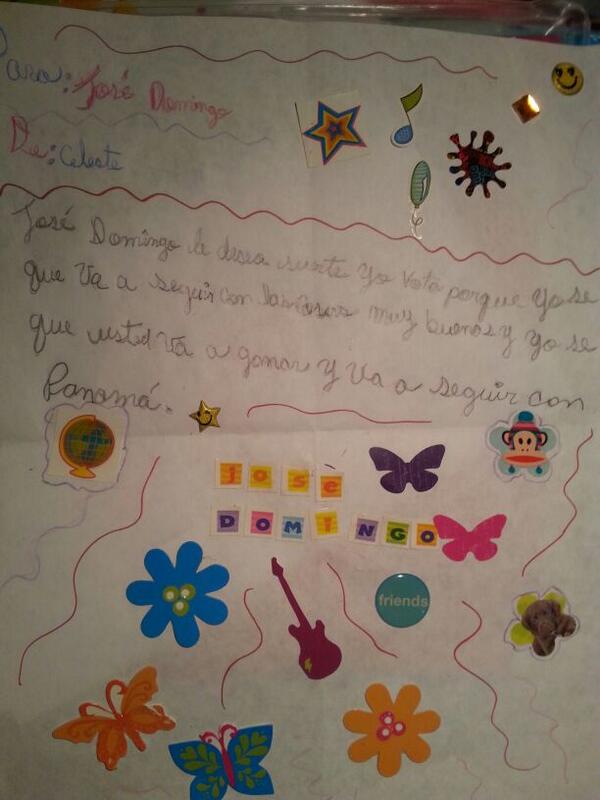 Para: José Domingo
De: Celeste
José Domingo le desea suerte yo vota porque yo se
que va a seguir con las cosas muy buenos y yo se
que usted va a ganar y va a seguir con
Panamá.
jose
DOMINGO
friends